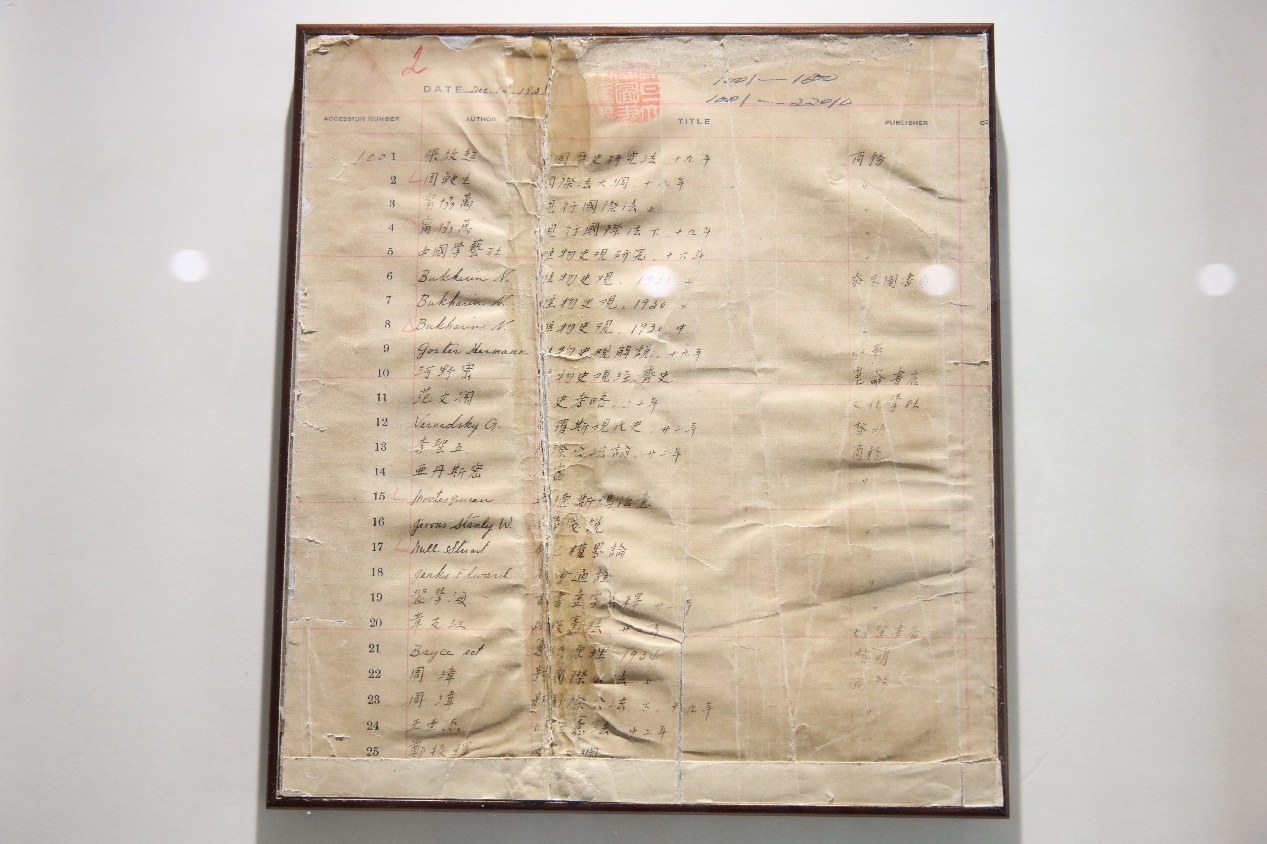 2
1001—1600
DATE Dec.
1001—22010
ACCESSION NUMBER AUTHOR TITLE PUBLISHER
1001 梁啟超 國歷史研究法 十九年 商務
2 周鯁生 國際法大綱 十八年 〃
3 甯協萬 現行國際法上 〃
4 甯協萬 現行國際法下 十九年 〃
5 中國學藝社 唯物史觀研究 十六年 〃
6 Bukharin N. 唯物史觀 1930 上 泰東圖書局
7 Bukharin N. 唯物史觀 1930 〃
8 Bukharin N. 唯物史觀 1930 中 〃
9 Gorter Hermann 唯物史觀解說 十九年
10 河野密 物史觀經濟史 崑崙書店
11 范文瀾 史考略 二十年 文化學社
12 Vernadsky G. 羅斯現代史 廿二年 黎明
13 李聖五 際公法論 廿二年 商務
14 亜丹斯密 富 〃
15 Montesquieu 德斯鳩法意
16 Jevons Stanley W. 淺說 〃
17 Mill Stuart 權界論 〃
18 Jenks Edward 會通詮 〃
19 裴學海 書虛字集釋 廿二年 〃
20 章友江 憲法 好望書店
21 Bryce ect 1930 黎明
22 周緯 新國際公法上 商務
23 周緯 新國際公法下 十九年 〃
24 王世杰 憲法 廿二年
25 綱